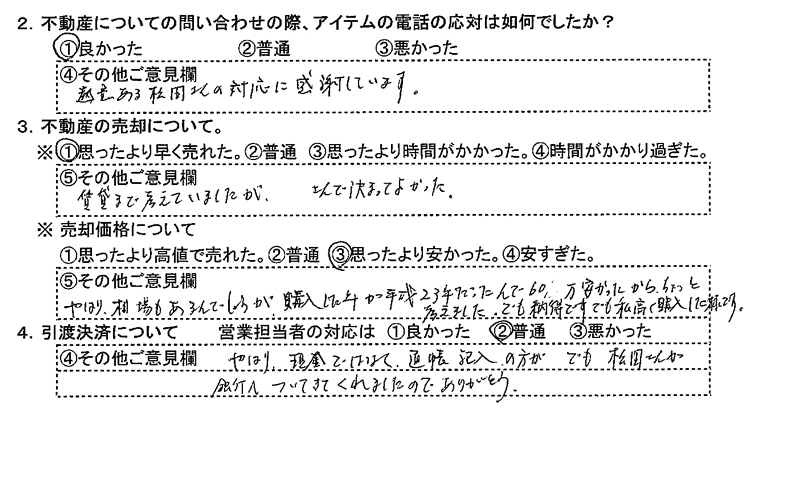 2. 不動産についての問い合わせの際、アイテムの電話の応対は如何でしたか?
①良かった ②普通 ③悪かった
④その他ご意見欄
熱意ある松岡さんの対応に感謝しています。
3. 不動産の売却について。
※①思ったより早く売れた。②普通 ③思ったより時間がかかった。④時間がかかり過ぎた。
⑤その他ご意見欄
賃貸まで考えていましたが、 さんで決まってよかった。
※ 売却価格について
①思ったより高値で売れた。②普通 ③思ったより安かった。④安すぎた。
⑤その他ご意見欄
やはり、相場もあるんでしょうが、購入した年が平成23年だったんで60 万安かったから、ちょっと
考えました。でも納得です でも私高く購入した
4. 引渡決済について 営業担当者の対応は ①良かった ②普通 ③悪かった
④その他ご意見欄 やはり、現金ではなくて、通帳記入の方が でも 松岡さんが
銀行へついてきてくれましたのでありがとう。